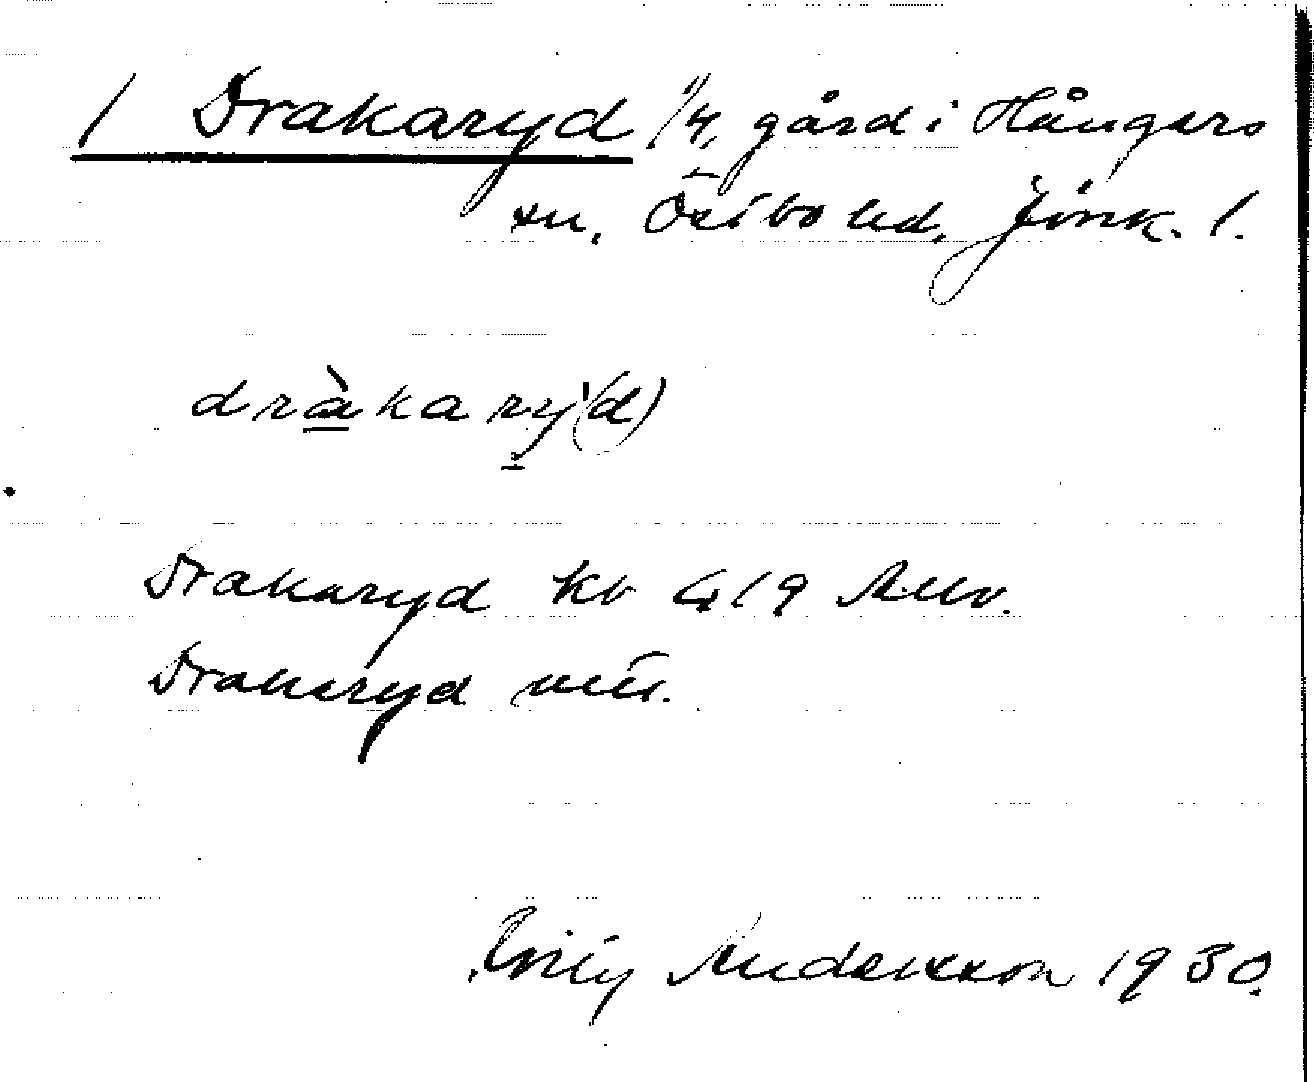 1 Drakaryd 1/4, gård i Hångers
sn, Östbo hd, Jönk. l.
dràkarỳ(d)
Drakaryd kv 419
Drakaryd utt.
Emily Andersson 1930.